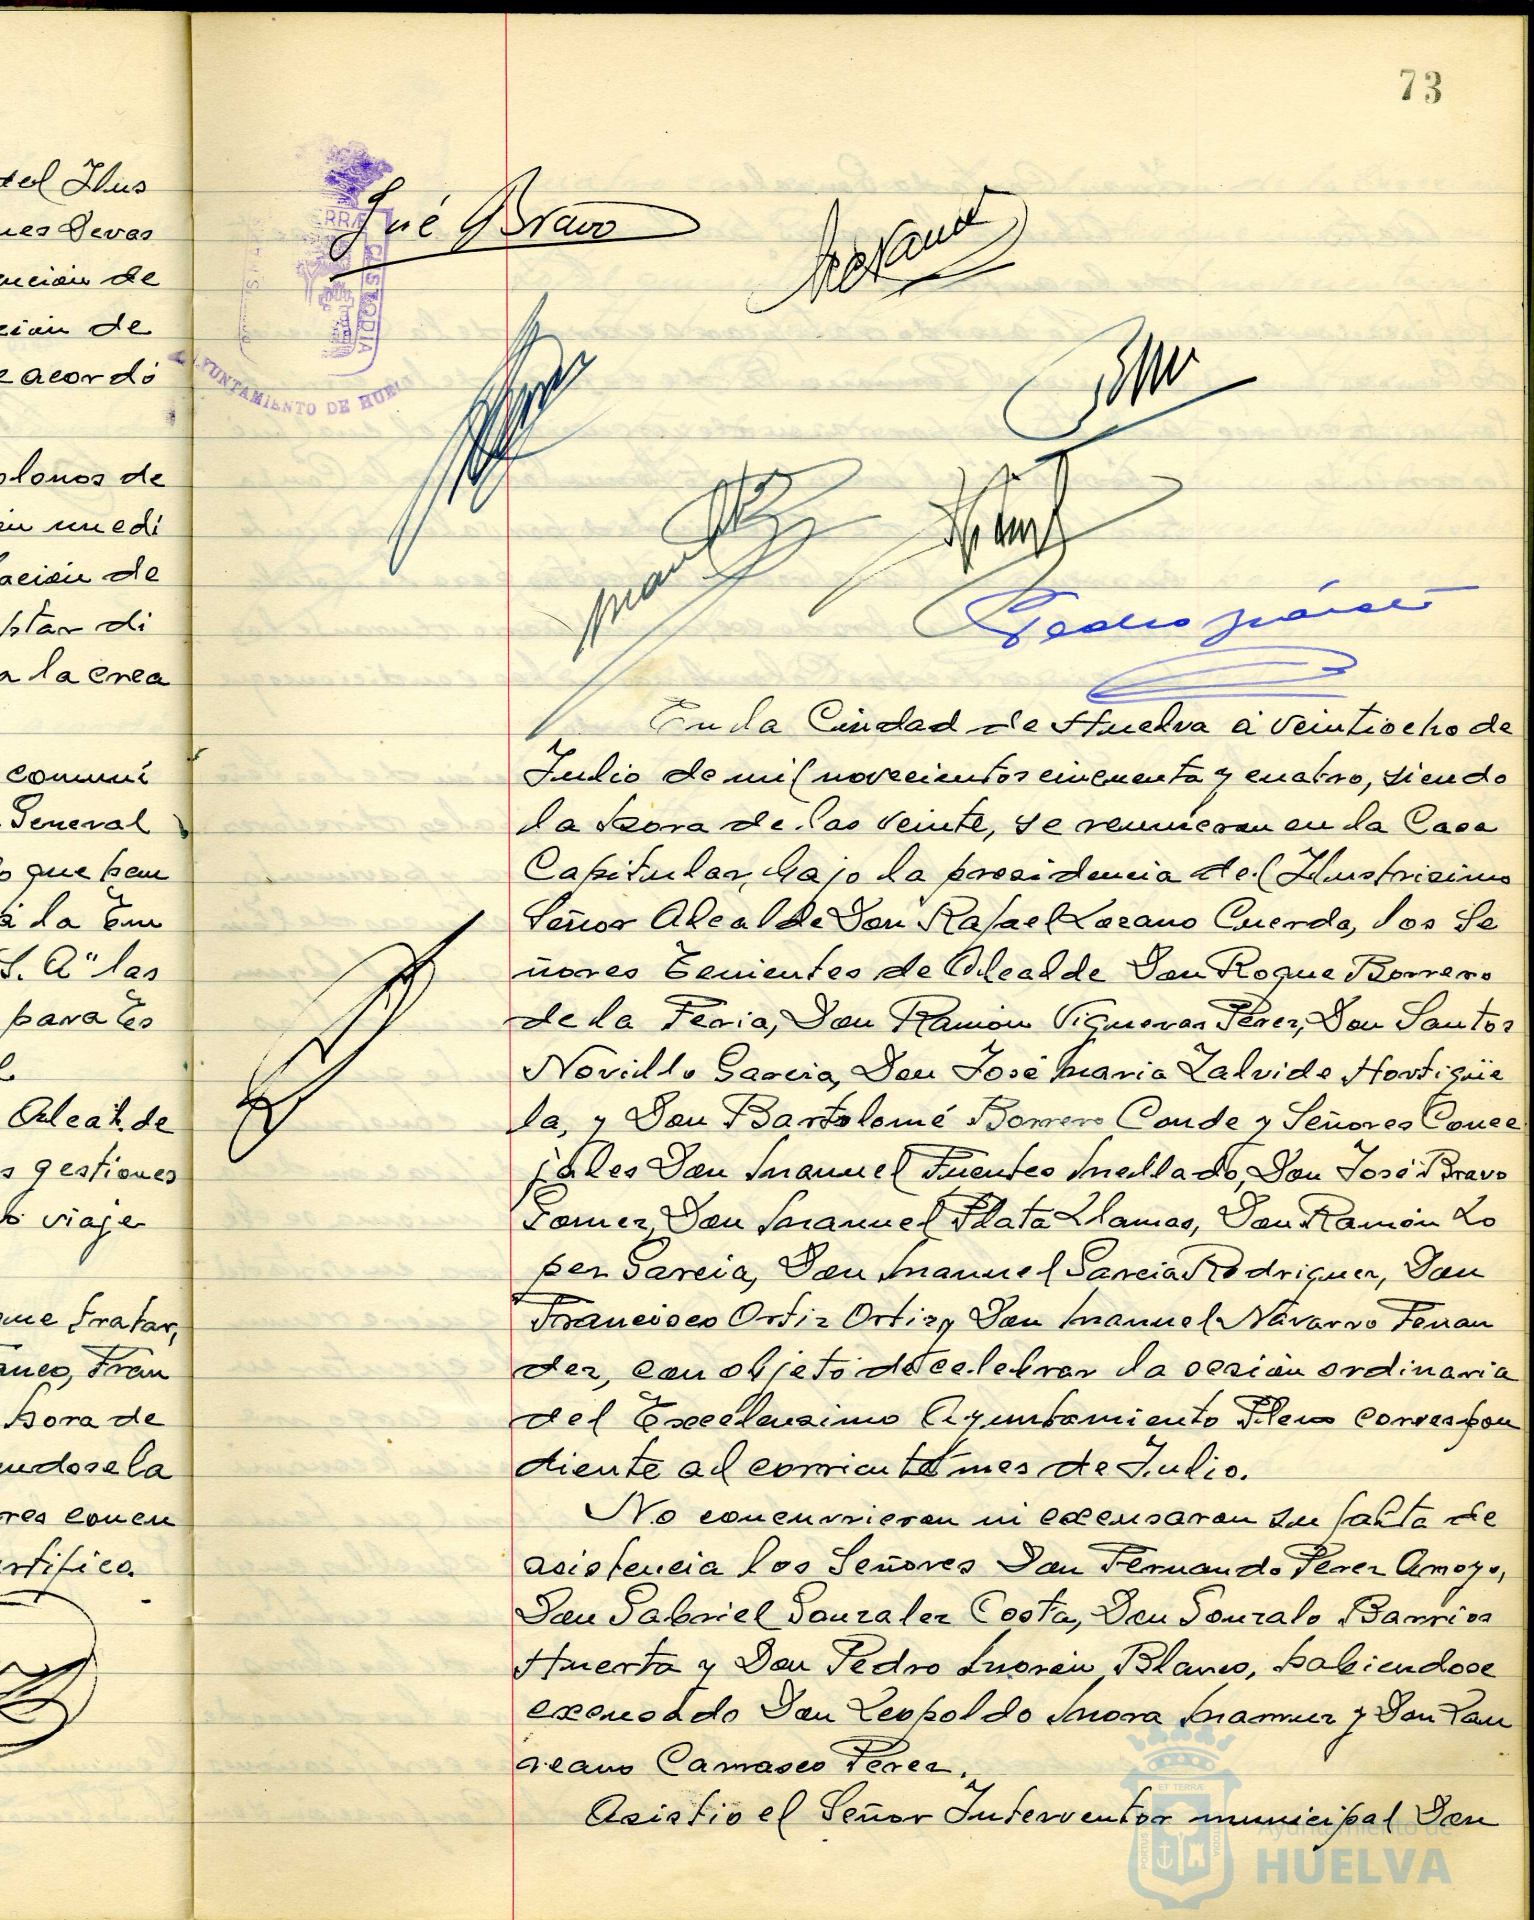 73
del Ilus
nes Devas
ención de
ción de
e acordó
olonos de
in un edi
ación de
star di
a la crea
comuni
General
o que han
á la Em
S. A" las
para Es
Alcalde
s gestiones
viaje
que tratar,
anco, Fran
hora de
ndose la
res concu
rtifico.
José Bravo
ET TERRÆ
CUSTODIA
AYUNTAMIENTO DE HUELVA
Manuel
Pedro
En la Ciudad de Huelva á veintiocho de
Julio de mil novecientos cincuenta y cuatro, siendo
la hora de las veinte, se reunieron en la Casa
Capitular, bajo la presidencia del Ilustrisimo
Señor Alcalde Don Rafael Lozano Cuerda, los Se
ñores Tenientes de Alcalde Don Roque Borrero
de la Feria, Don Ramón Vigueras Pérez, Don Santos
Novillo Garcia, Don José Maria Zalvide Hortigüe
la, y Don Bartolomé Borrero Conde y Señores Conce
jales Don Manuel Fuentes Mellado, Don José Bravo
Gomez, Don Manuel Plata Llamas, Don Ramón Lo
pez Garcia, Don Manuel Garcia Rodriguez, Don
Francisco Ortiz Ortiz y Don Manuel Navarro Fernan
dez, con objeto de celebrar la sesión ordinaria
del Excelensimo Ayuntamiento Pleno correspon
diente al corriente mes de Julio.
No concurrieron ni excusaron su falta de
asistencia los Señores Don Fernando Perez Amoyo,
Don Gabriel Gonzalez Costa, Don Gonzalo Barrios
Huerta y Don Pedro Morón Blanco, habiendose
excusado Don Leopoldo Mora Mannuz y Don Lau
reano Carrasco Perez.
Asistio el Señor Interventor municipal Don
ET TERRÆ
PORTUS
CUSTODIA
Ayuntamiento de
HUELVA